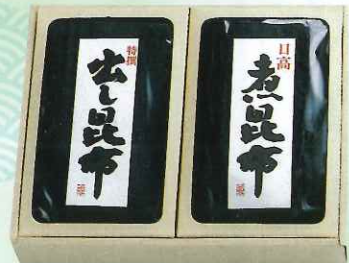 特撰
出し昆布
日高
煮昆布